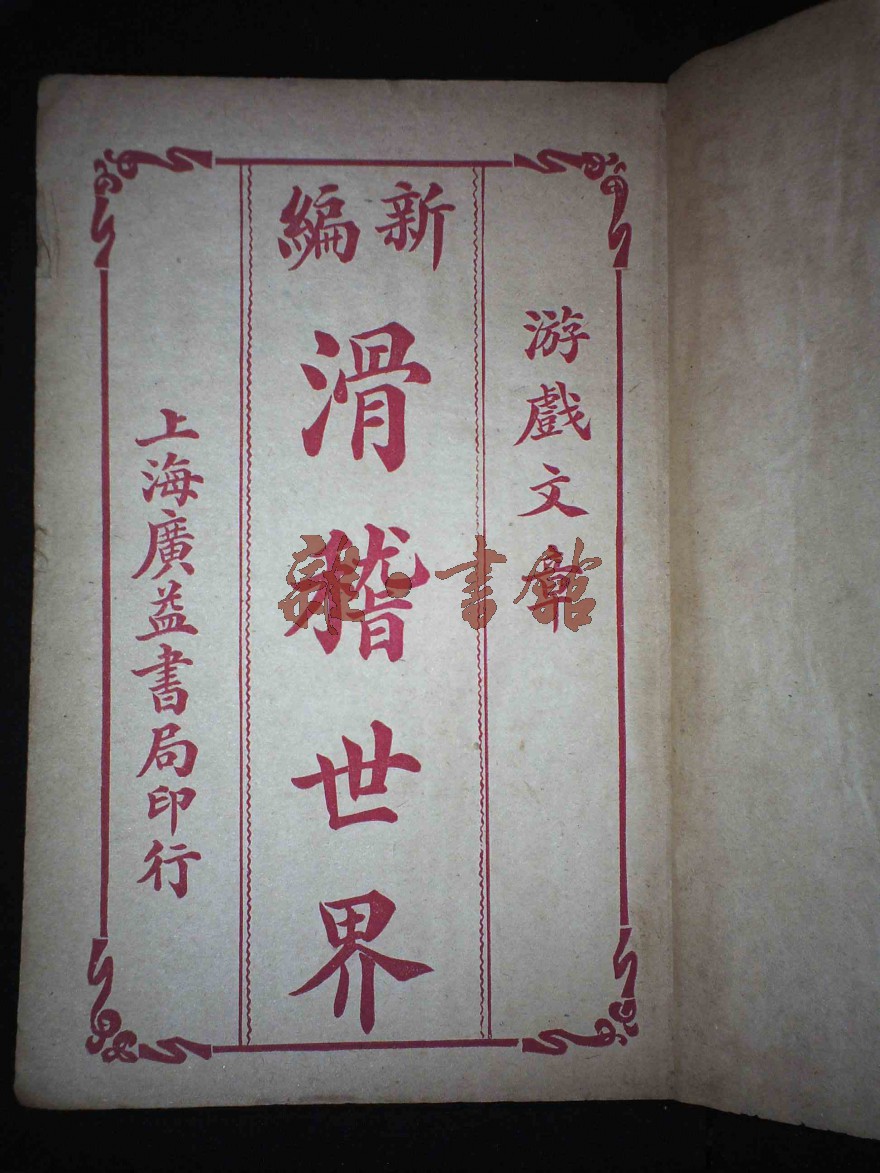 游戲文章
新編
滑稽世界
上海廣益書局印行
書館